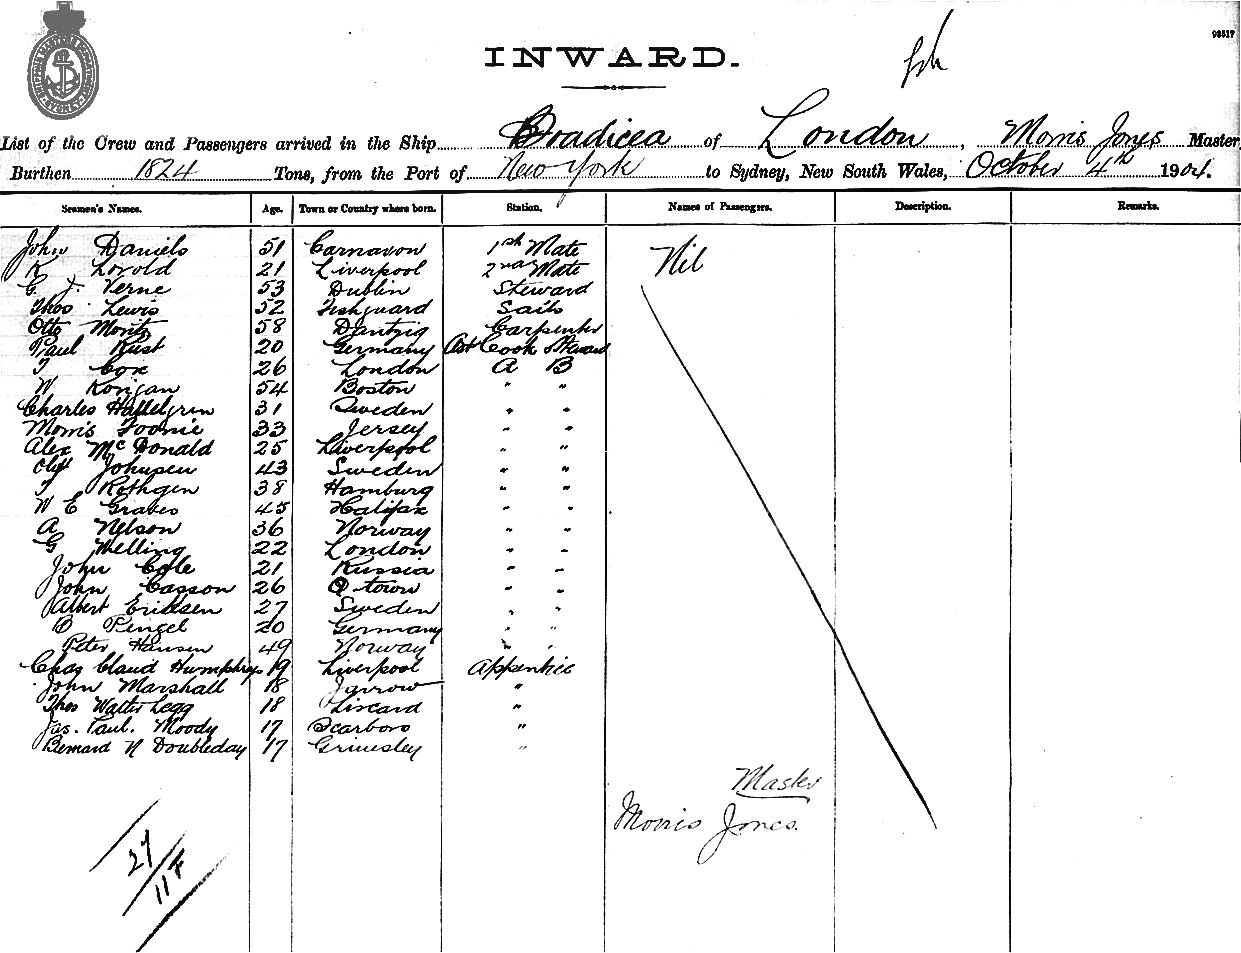 98517
INWARD.
List of the Crew and Passengers arrived in the Ship Boadicea of London, Morris Jones Master,
Burthen 1824 Tons, from the Port of New York to Sydney, New South Wales, October 4th 1904.
Seamen's Names. Age. Town or Country where born. Station. Names of Passengers. Description. Remarks.
John Daniels 51 Carnavon 1st Mate Nil
K Lovold 21 Liverpool 2nd Mate
G. J. Verne 53 Dublin Steward
Thos Lewis 52 Fishguard Sails
Otto Moritz 58 Dantzig Carpenter
Paul Rust 20 Germany Ast Cook & Steward
T Cox 26 London A B
W Korrjan 54 Boston " "
Charles Hallelgrin 31 Sweden " "
Morris Toonie 33 Jersey " "
Alex McDonald 25 Liverpool " "
Olff Johnsen 43 Sweden " "
T Rothgen 38 Hamburg " "
W E Graves 45 Halifax " "
A Nelson 36 Norway " "
G Welling 22 London " "
John Cole 21 Russia " "
John Casson 26 Q town " "
Albert Eriksen 27 Sweden " "
B Pengel 20 Germany " "
Peter Hansen 49 Norway " "
Chas Claud Humphrys 19 Liverpool Apprentice
John Marshall 18 Jarrow "
Thos Walter Legg 18 Liscard "
Jas. Paul. Moody 17 Scarboro "
Bernard N Doubleday 17 Grimsley "
Master
Morris Jones.
27
11 F